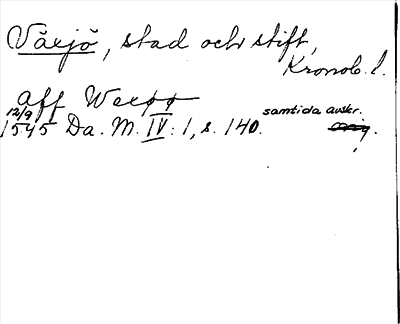 Växjö, stad och stift,
Kronob. l.
aff Wexøø
12/9 samtida avskr.
1545 Da. M. IV: 1, s. 140. orig.